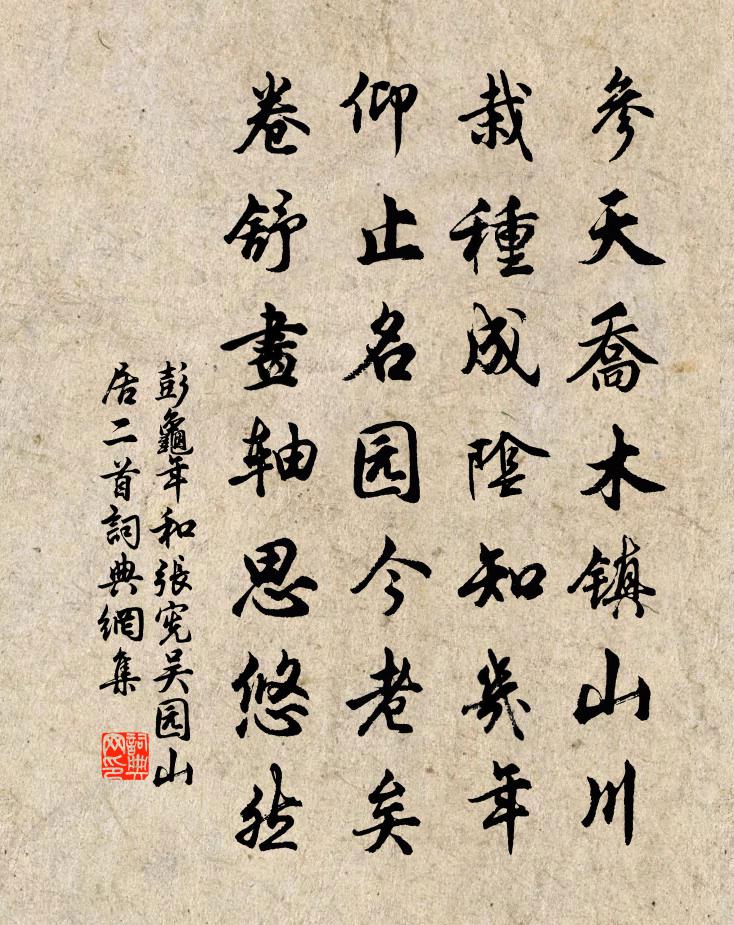 參天喬木镇山川
栽種成陰知幾年
仰止名园今老矣
卷舒畫軸思悠然
彭龜年和張宪吴园山
居二首詞典網集
詞典
网印